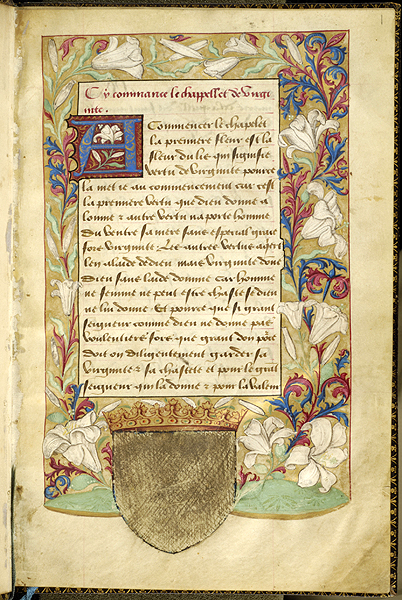 Cy commance le chapellet de virgi
nite.
A Commencer le chapelet
la premiere fleur est la
fleur du lis qui signifie
vertu de virginite pource
la met le au commencement car cest
la premiere vertu que dieu donne a
lomme & autre vertu na porte homme
du ventre sa mere sans especial grace
fors virginite Les autres vertus aqert
len a laide de dieu mais virginite donne
dieu sans laide domme car homme
ne femme ne peut estre chaste se dieu
ne lui donne Et pource que si grant
seigneur comme dieu ne donne pas
voulentiers fors que grant don pour
doit on diligentement garder sa
virginite & sa chastete et pour le grant
seigneur qui la donne & pour la valeur
1